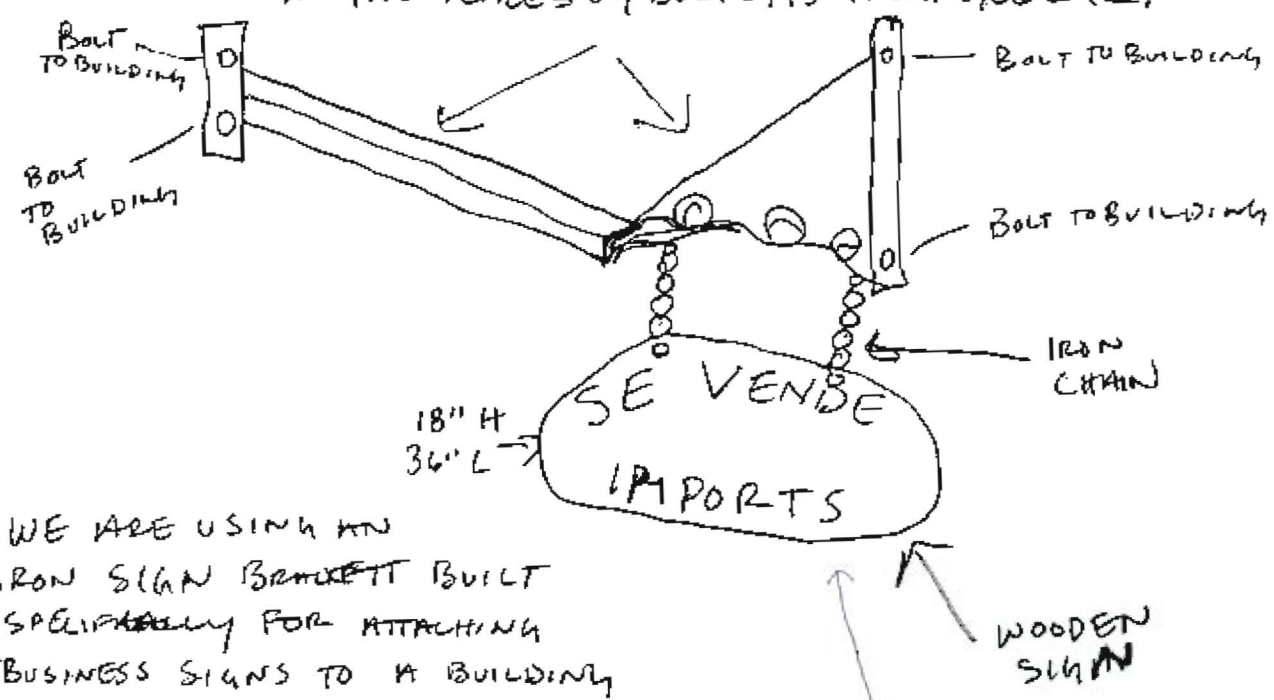 BOLT
TO BUILDING
BOLT TO BUILDING
BOLT
TO
BUILDING
BOLT TO BUILDING
IRON
CHAIN
SE VENDE
IMPORTS
18" H
36" L
WE ARE USING AN
IRON SIGN BRACKETT BUILT
SPECIFICALLY FOR ATTACHING
BUSINESS SIGNS TO A BUILDING
WOODEN
SIGN